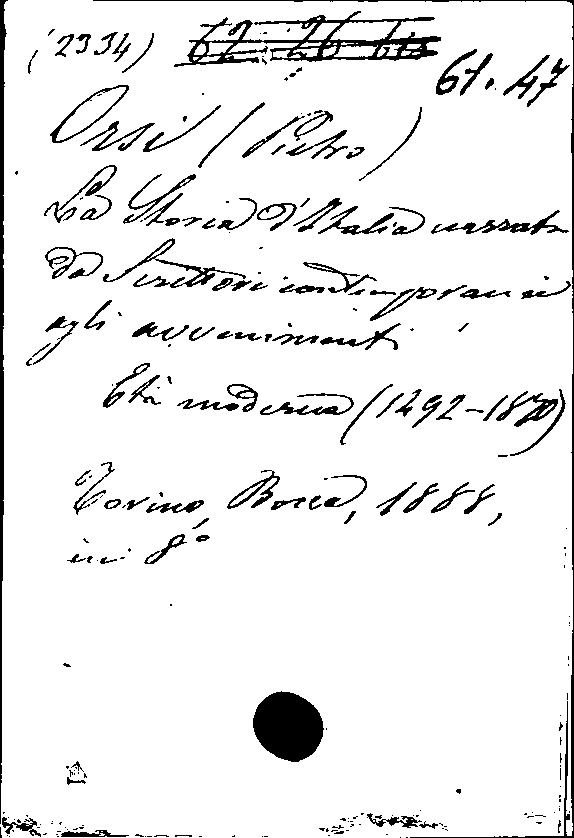 (2334) 62. 26 bis
61. 47
Orsi (Pietro)
La Storia d'Italia narrata
da Scrittori contemporanei
agli avvenimenti
Età moderna (1492-1870)
Torino, Bocca, 1888,
in 8°